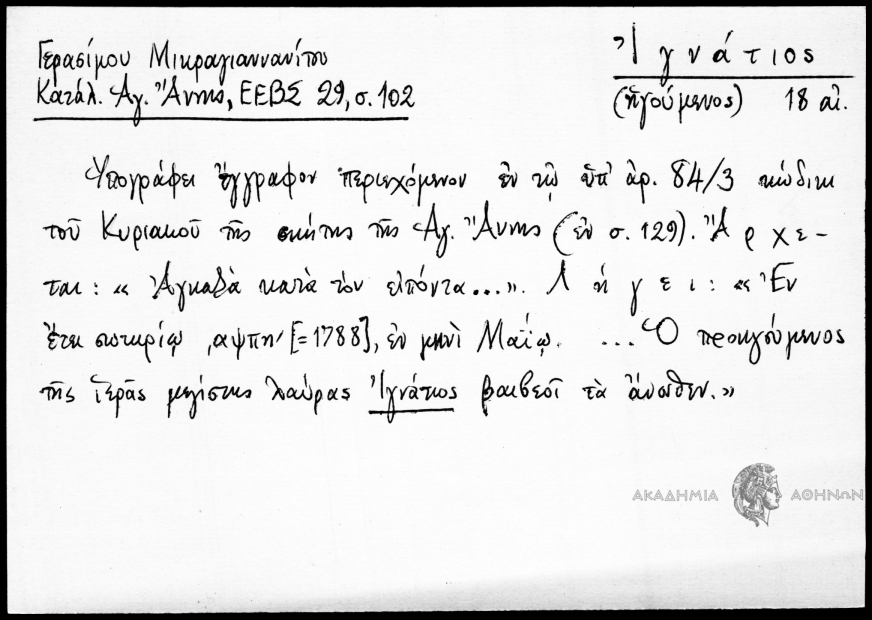 Γερασίμου Μικραγιαννανίτου
Κατάλ. Ἁγ. Ἄννης, ΕΕΒΣ 29, σ. 102
Ἰγνάτιος
(ἡγούμενος) 18 αἰ.
Ὑπογράφει ἔγγραφον περιεχόμενον ἐν τῷ ὑπ' ἀρ. 84/3 κώδικι
τοῦ Κυριακοῦ τῆς σκήτης τῆς Ἁγ. Ἄννης (ἐν σ. 129). Ἄρχε-
ται: « κατὰ τὸν εἰπόντα...». Λήγει: «Ἐν
ἔτει σωτηρίῳ ͵αψπη' [=1788], ἐν μηνὶ Μαΐῳ. ...Ὁ προηγούμενος
τῆς ἱερᾶς μεγίστης λαύρας Ἰγνάτιος βαιβεοῖ τὰ ἄνωθεν.»
ΑΚΑΔΗΜΙΑ ΑΘΗΝΩΝ